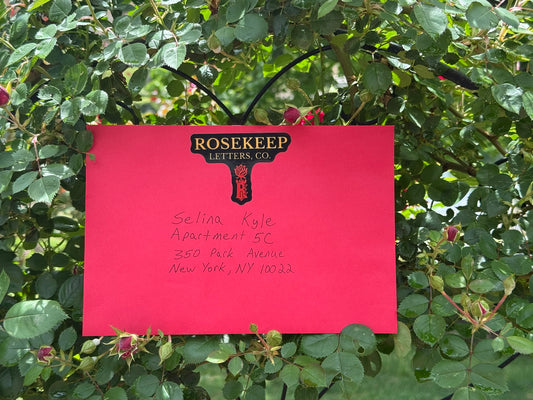 ROSEKEEP
LETTERS, CO.
Selina Kyle
Apartment 5C
350 Park Avenue
New York, NY 10022